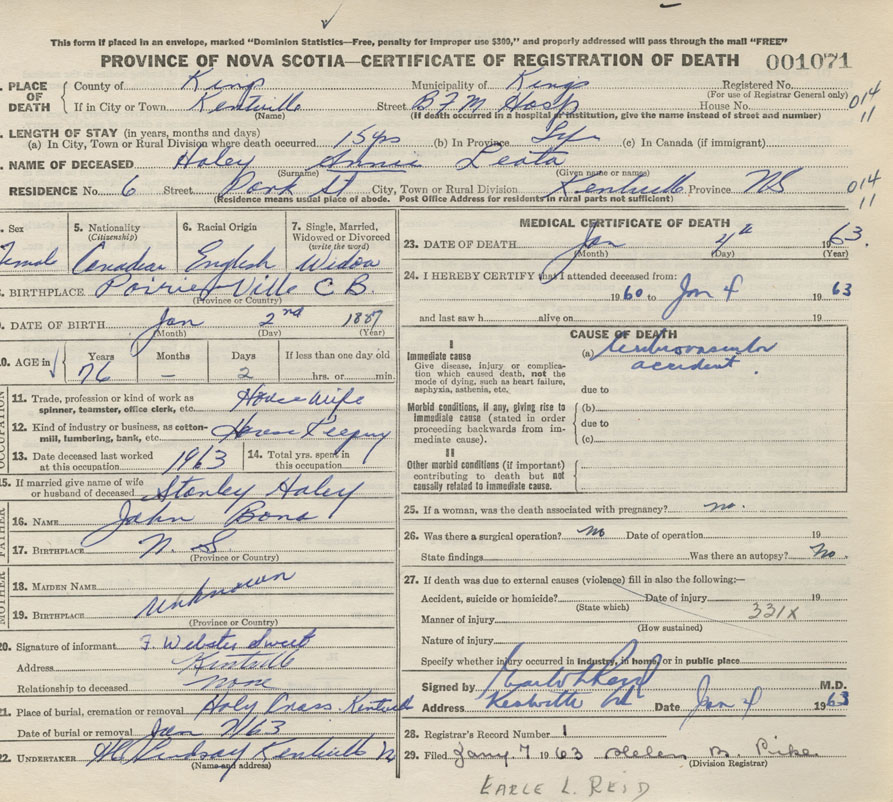 This form if placed in an envelope, marked "Dominion Statistics—Free, penalty for improper use $300," and properly addressed will pass through the mail "FREE"
PROVINCE OF NOVA SCOTIA—CERTIFICATE OF REGISTRATION OF DEATH 001071
PLACE OF DEATH County of Kings Municipality of Kings Registered No. (For use of Registrar General only)
If in City or Town Kentville (Name) Street B F M Hosp House No. 014 11
(If death occurred in a hospital or institution, give the name instead of street and number)
LENGTH OF STAY (in years, months and days)
(a) In City, Town or Rural Division where death occurred 15 yrs (b) In Province (c) In Canada (if immigrant)
NAME OF DECEASED Haley Annie Leota
(Surname) (Given name or names)
RESIDENCE No. 6 Street Park St City, Town or Rural Division Kentville Province NS 014 11
(Residence means usual place of abode. Post Office Address for residents in rural parts not sufficient)
Sex Female
5. Nationality (Citizenship) Canadian
6. Racial Origin English
7. Single, Married, Widowed or Divorced (write the word) Widow
BIRTHPLACE Poirier Ville C B.
(Province or Country)
DATE OF BIRTH Jan 2nd 1887
(Month) (Day) (Year)
10. AGE in Years Months Days If less than one day old
76 — 2 hrs. or min.
OCCUPATION
11. Trade, profession or kind of work as spinner, teamster, office clerk, etc. House wife
12. Kind of industry or business, as cotton-mill, lumbering, bank, etc. House Keeping
13. Date deceased last worked at this occupation 1963
14. Total yrs. spent in this occupation
15. If married give name of wife or husband of deceased Stanley Haley
FATHER
16. NAME John Bona
17. BIRTHPLACE N. S.
(Province or Country)
MOTHER
18. MAIDEN NAME
unknown
19. BIRTHPLACE
(Province or Country)
20. Signature of informant F. Webster Sweet
Address Kentville
Relationship to deceased none
21. Place of burial, cremation or removal Holy Cross Kentville
Date of burial or removal Jan 7/63
22. UNDERTAKER Lindsay Kentville
(Name and address)
MEDICAL CERTIFICATE OF DEATH
23. DATE OF DEATH Jan 4th 1963.
(Month) (Day) (Year)
24. I HEREBY CERTIFY that I attended deceased from:
1960 to Jan 4 1963
and last saw h alive on 19
CAUSE OF DEATH
I
Immediate cause (a) Cerebrovascular accident.
Give disease, injury or complication which caused death, not the mode of dying, such as heart failure, asphyxia, asthenia, etc.
due to
Morbid conditions, if any, giving rise to immediate cause (stated in order proceeding backwards from immediate cause).
(b)
due to
(c)
II
Other morbid conditions (if important) contributing to death but not causally related to immediate cause.
25. If a woman, was the death associated with pregnancy? no.
26. Was there a surgical operation? no Date of operation 19
State findings Was there an autopsy? No.
27. If death was due to external causes (violence) fill in also the following:—
Accident, suicide or homicide? Date of injury 19
(State which) 331X
Manner of injury
(How sustained)
Nature of injury
Specify whether injury occurred in industry, in home, or in public place
Signed by M.D.
Address Kentville Date Jan 4 1963
28. Registrar's Record Number 1
29. Filed Jany. 7 1963 Helen B. Pike
(Division Registrar)
EARLE L. REID